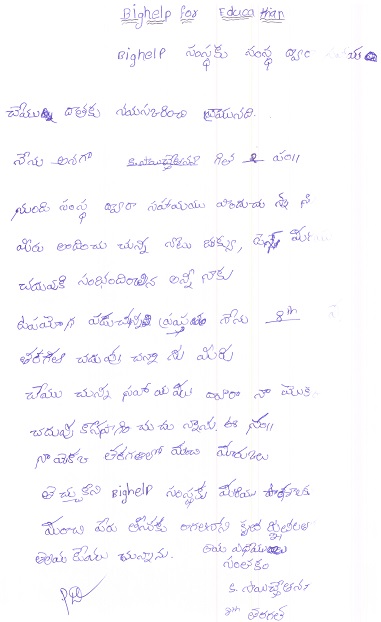 Bighelp for Education
Bighelp సంస్థకు సంస్థ ద్వారా
చేయు దాతకు నమస్కరించి వ్రాయునది.
నేను అనగా గత 2 సం॥
నుండి సంస్థ ద్వారా సహాయము పొందుచు న్నాను
మీరు అందించు చున్న నోటు బుక్కు, పెన్ను
చదువుకి సంబంధించిన అన్నీ నాకు
ఉపయోగ పడుచున్నవి ప్రస్తుతం నేను 8th
తరగతి చదువు చున్నా ను మీరు
చేయు చున్న సహాయము ద్వారా నా యొక్క
చదువు కొనసాగి చు చు న్నాను. ఈ సం॥
నా యొక్క తరగతిలో మంచి మార్కులు
తెచ్చుకొని Bighelp సంస్థకు మరియు పాఠశాలకు
మంచి పేరు తీసుకు రాగలనని కృతజ్ఞతలు
తెలియ చేయు చున్నాను.
సంతకం
8th తరగతి